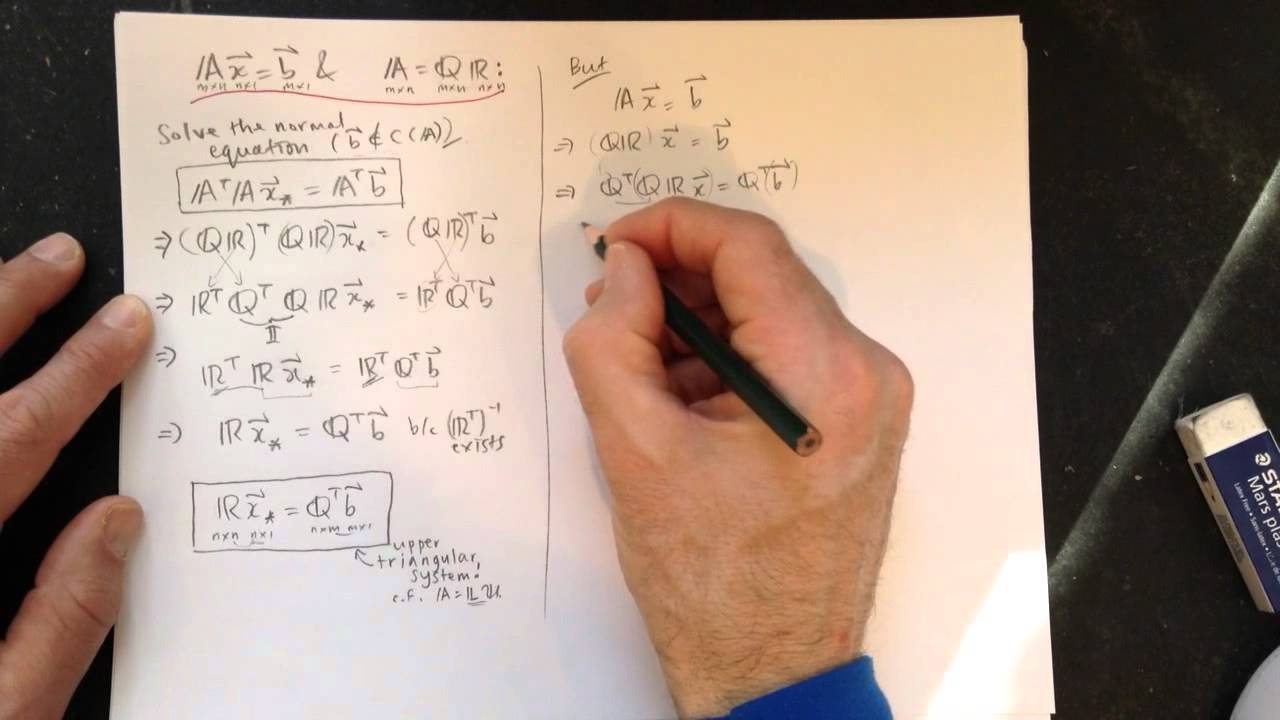 𝔸x⃗ = b⃗ & 𝔸 = ℚℝ:
m×n n×1 m×1 m×n m×n n×n
Solve the normal
equation (b⃗ ∉ C(𝔸))
𝔸ᵀ𝔸x⃗* = 𝔸ᵀb⃗
⇒ (ℚℝ)ᵀ(ℚℝ)x⃗* = (ℚℝ)ᵀb⃗
⇒ ℝᵀℚᵀℚℝx⃗* = ℝᵀℚᵀb⃗
𝕀
⇒ ℝᵀℝx⃗* = ℝᵀℚᵀb⃗
⇒ ℝx⃗* = ℚᵀb⃗ b/c (ℝᵀ)⁻¹
exists
ℝx⃗* = ℚᵀb⃗
n×n n×1 n×m m×1
upper
triangular
system:
c.f. 𝔸 = 𝕃𝕌.
But
𝔸x⃗ = b⃗
⇒ (ℚℝ)x⃗ = b⃗
⇒ ℚᵀ(ℚℝx⃗) = ℚᵀ(b⃗)
STA
Mars plas